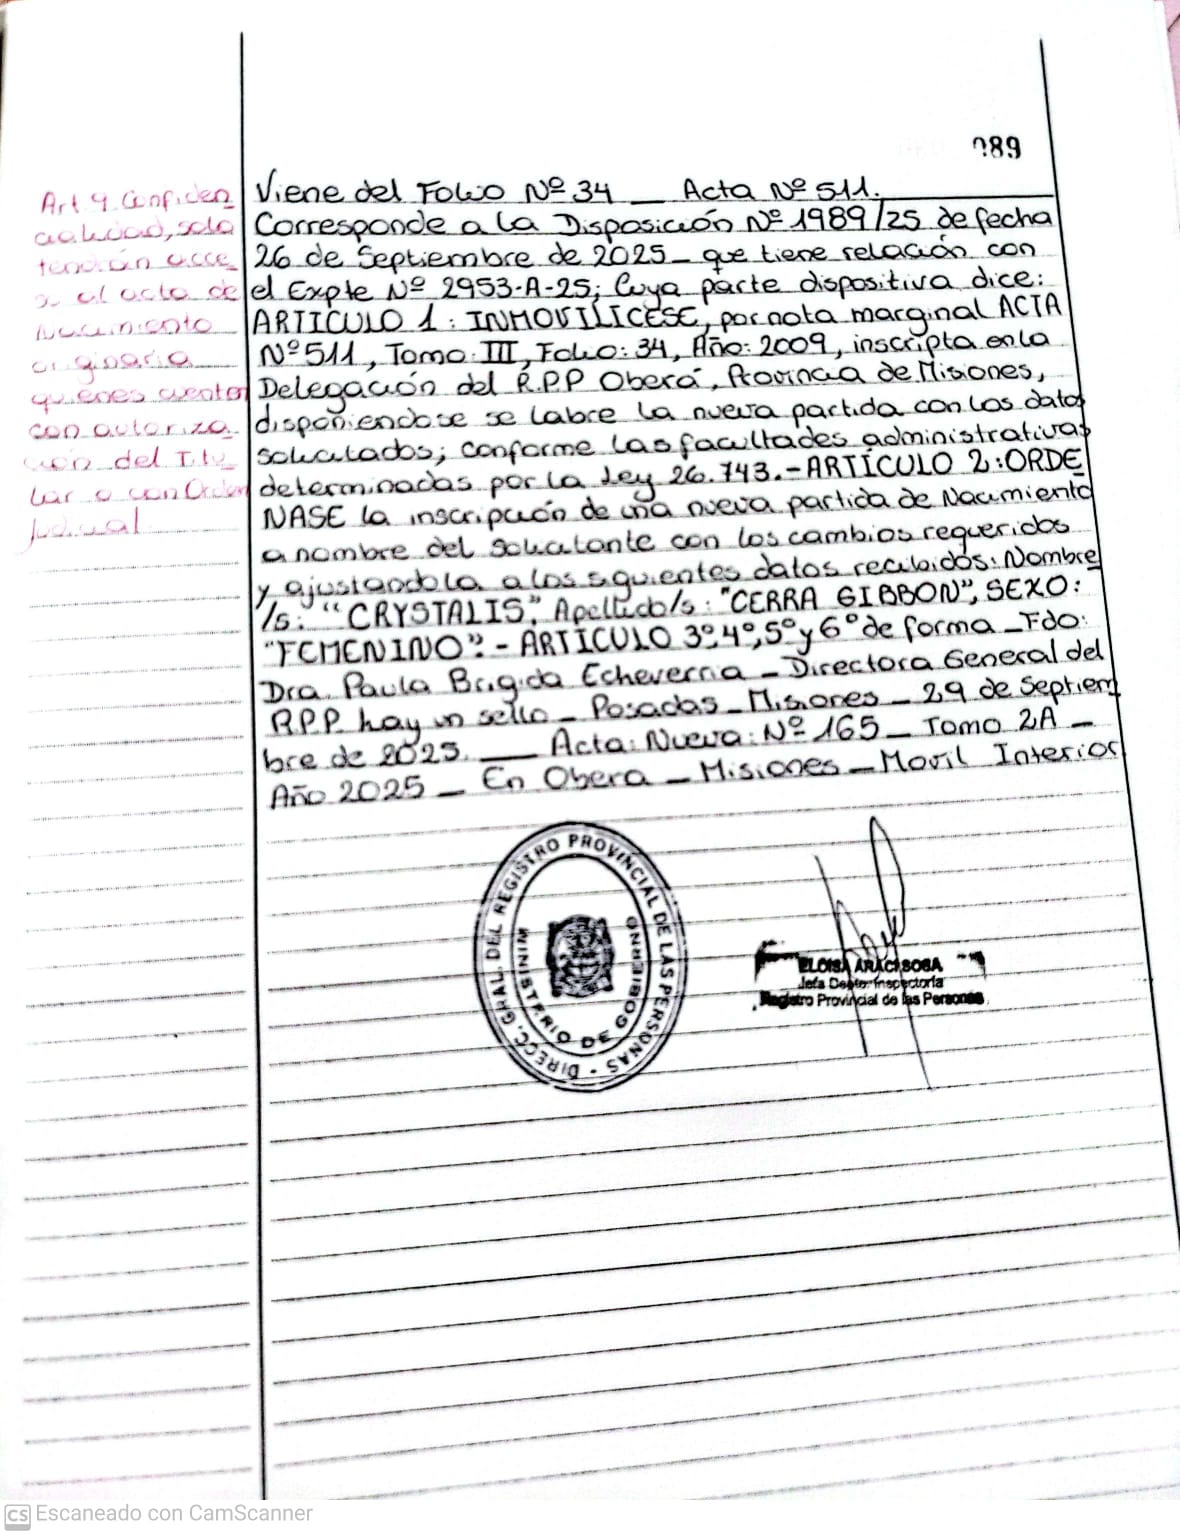 989
Art 9 Confiden
cialidad, solo
tendrán acce
so al acta de
Nacimiento
originaria
quienes cuenten
con autoriza
ción del Titu
lar o con Orden
Judicial
Viene del Folio Nº 34 _ Acta Nº 511.
Corresponde a la Disposición Nº 1989/25 de fecha
26 de Septiembre de 2025_ que tiene relación con
el Expte Nº 2953-A-25; Cuya parte dispositiva dice:
ARTICULO 1: INMOVILICESE, por nota marginal ACTA
Nº 511, Tomo: III, Folio: 34, Año: 2009, inscripta en la
Delegación del R.P.P Oberá, Provincia de Misiones,
disponiendose se labre la nueva partida con los datos
solicitados; conforme las facultades administrativas
determinadas por la Ley 26.743.-ARTÍCULO 2: ORDE
NASE la inscripción de una nueva partida de Nacimiento
a nombre del solicitante con los cambios requeridos
y ajustandola a los siguientes datos recibidos: Nombre
/s: "CRYSTALIS", Apellido/s: "CERRA GIBBON", SEXO:
"FEMENINO".- ARTICULO 3º,4º,5º y 6º de forma _Fdo:
Dra. Paula Brigida Echeverria _ Directora General del
R.P.P. hay un sello _ Posadas _ Misiones _ 29 de Septiem
bre de 2025. _ Acta: Nueva: Nº 165 _ Tomo 2A _
Año 2025 _ En Obera _ Misiones _ Movil Interior
DIRECC. GRAL. DEL REGISTRO PROVINCIAL DE LAS PERSONAS
MINISTERIO DE GOBIERNO
ELOISA ARACI SOSA
Jefa Depto. Inspectoría
Registro Provincial de las Personas
CS Escaneado con CamScanner